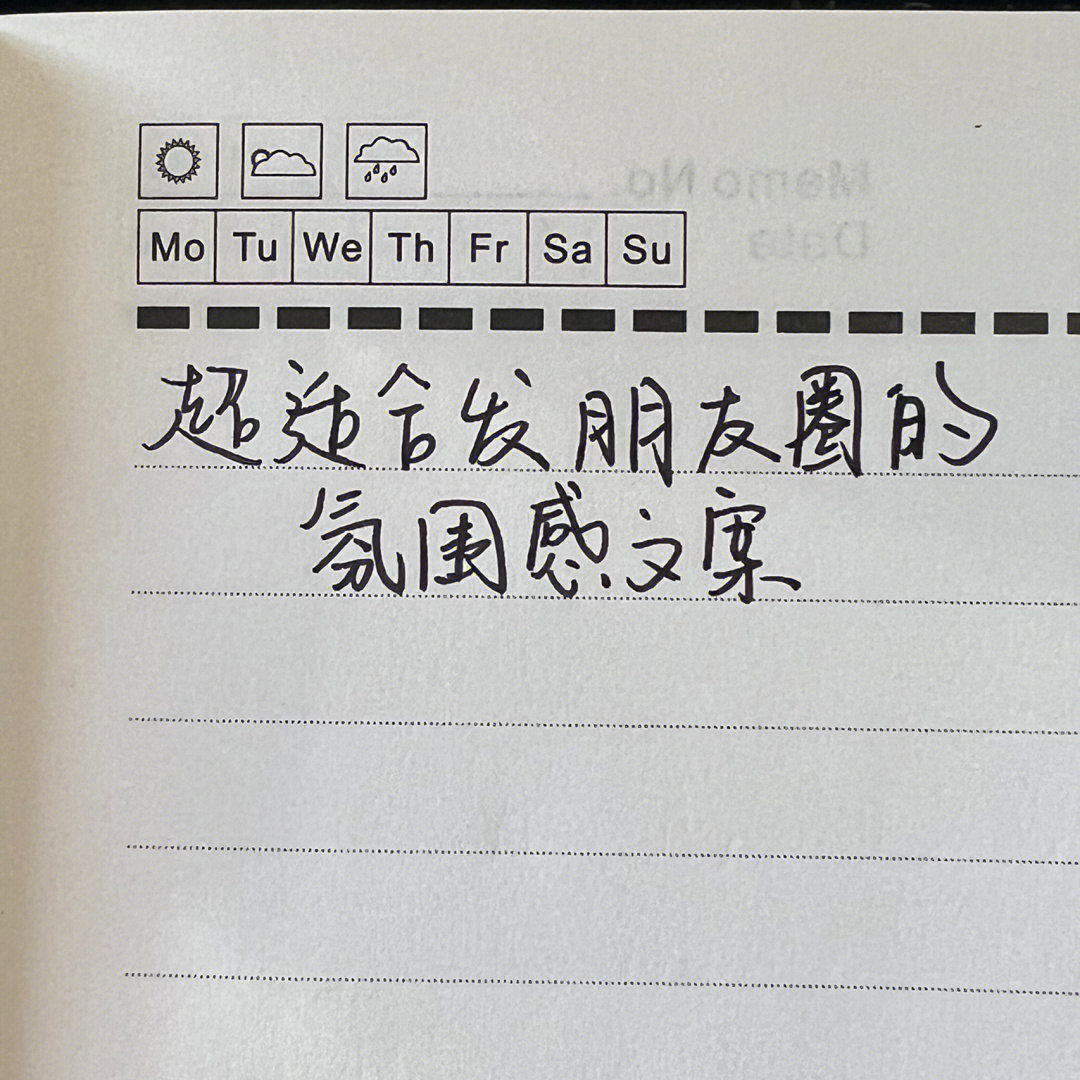 Memo No
Data
Mo Tu We Th Fr Sa Su
超适合发朋友圈的
氛围感文案